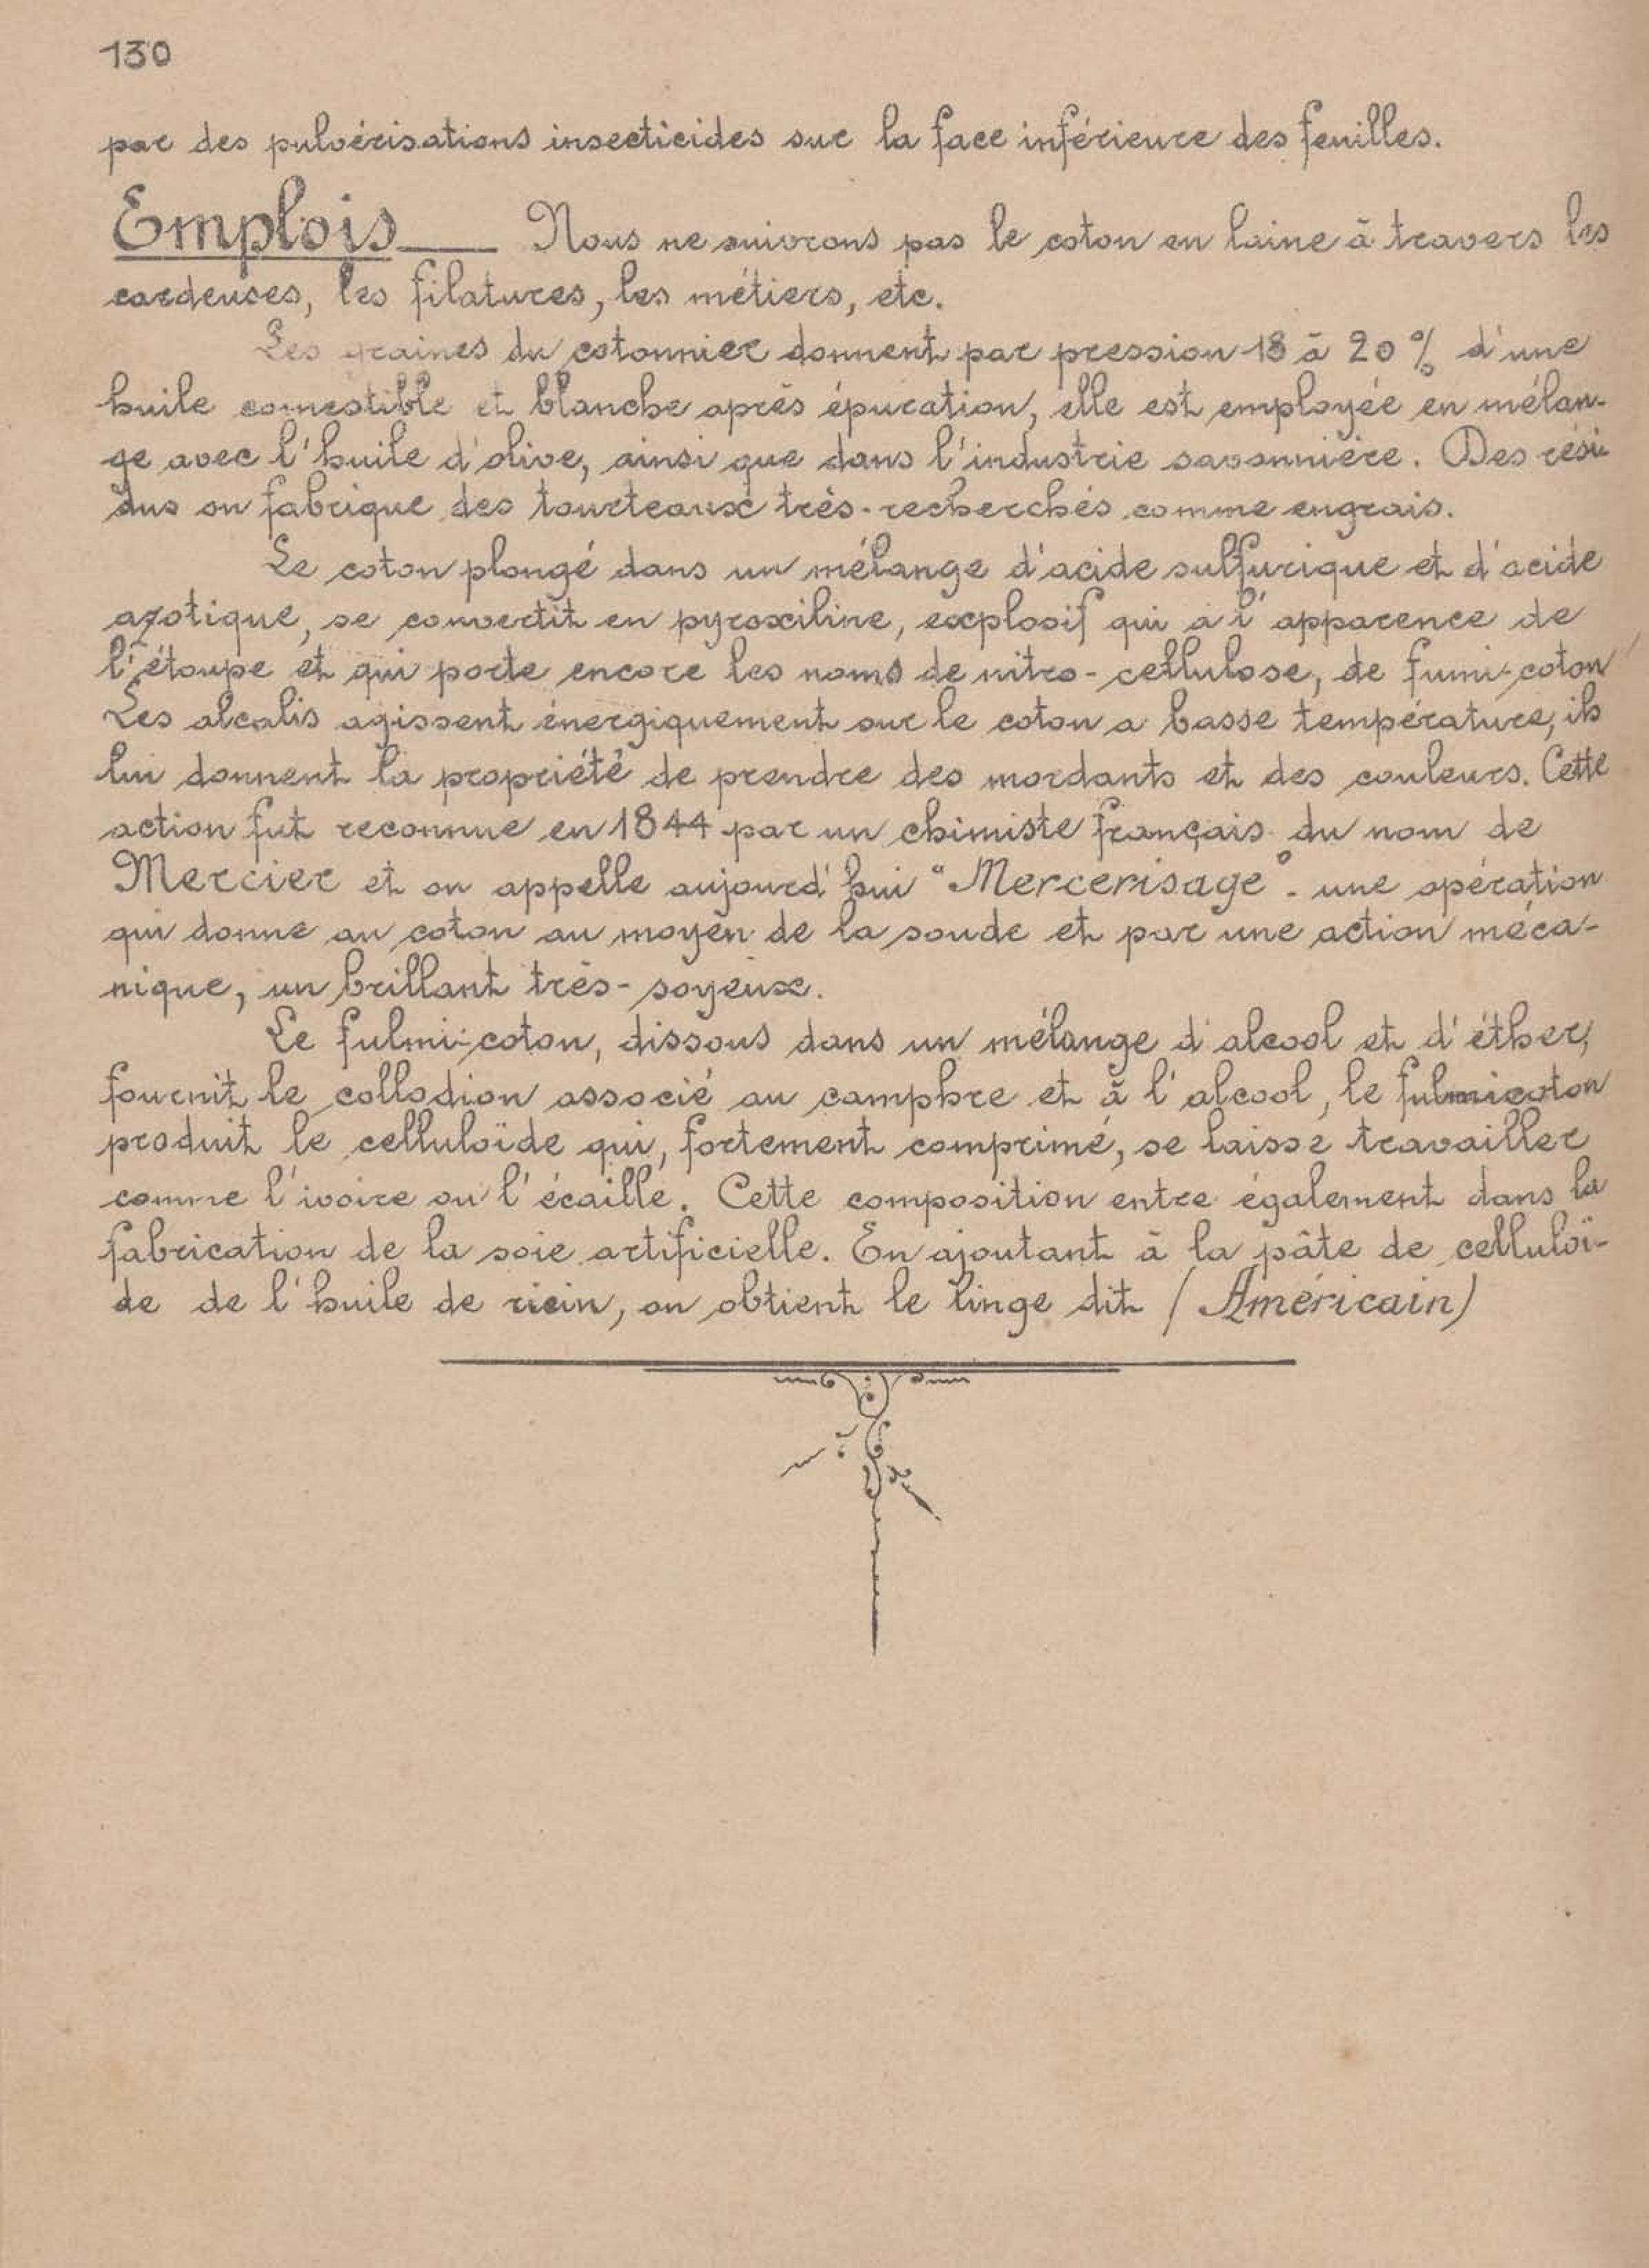 130
par des pulvérisations insecticides sur la face inférieure des feuilles.
Emplois — Nous ne suivrons pas le coton en laine à travers les
cardeuses, les filatures, les métiers, etc.
Les graines du cotonnier donnent par pression 18 à 20 % d'une
huile comestible et blanche après épuration, elle est employée en mélan-
ge avec l'huile d'olive, ainsi que dans l'industrie savonnière. Des rési
dus on fabrique des tourteaux très-recherchés comme engrais.
Le coton plongé dans un mélange d'acide sulfurique et d'acide
azotique, se convertit en pyroxiline, explosif qui a l'apparence de
l'étoupe et qui porte encore les noms de nitro-cellulose, de fumi-coton
Les alcalis agissent énergiquement sur le coton a basse température, ils
lui donnent la propriété de prendre des mordants et des couleurs. Cette
action fut reconnue en 1844 par un chimiste français du nom de
Mercier et on appelle aujourd'hui "Mercerisage". une opération
qui donne au coton au moyen de la soude et par une action méca-
nique, un brillant très-soyeux.
Le fulmi-coton, dissous dans un mélange d'alcool et d'éther,
fournit le collodion associé au camphre et à l'alcool, le fulmicoton
produit le celluloïde qui, fortement comprimé, se laisse travailler
comme l'ivoire ou l'écaille. Cette composition entre également dans la
fabrication de la soie artificielle. En ajoutant à la pâte de celluloï-
de de l'huile de ricin, on obtient le linge dit (Américain)